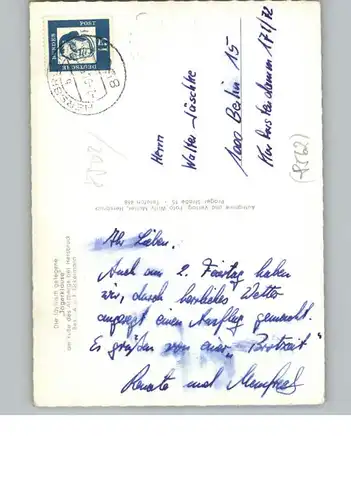 Ihr Lieben.
Auch am 2. Feiertag haben
wir, durch herrliches Wetter
angeregt einen Ausflug gemacht.
Es grüßen von einer „Brotzeit"
Renate und Manfred
Herrn
Walter Jäschke
1000 Berlin 15
Kurfürstendamm 171/72
(8562)
DEUTSCHE
BUNDESPOST
15
Die idyllisch gelegene
"Jägerklause"
am Fuße des Arzbergs bei Hersbruck
Aufnahme und Verlag Foto Willy Müller, Hersbruck
Prager Straße 15 - Telefon